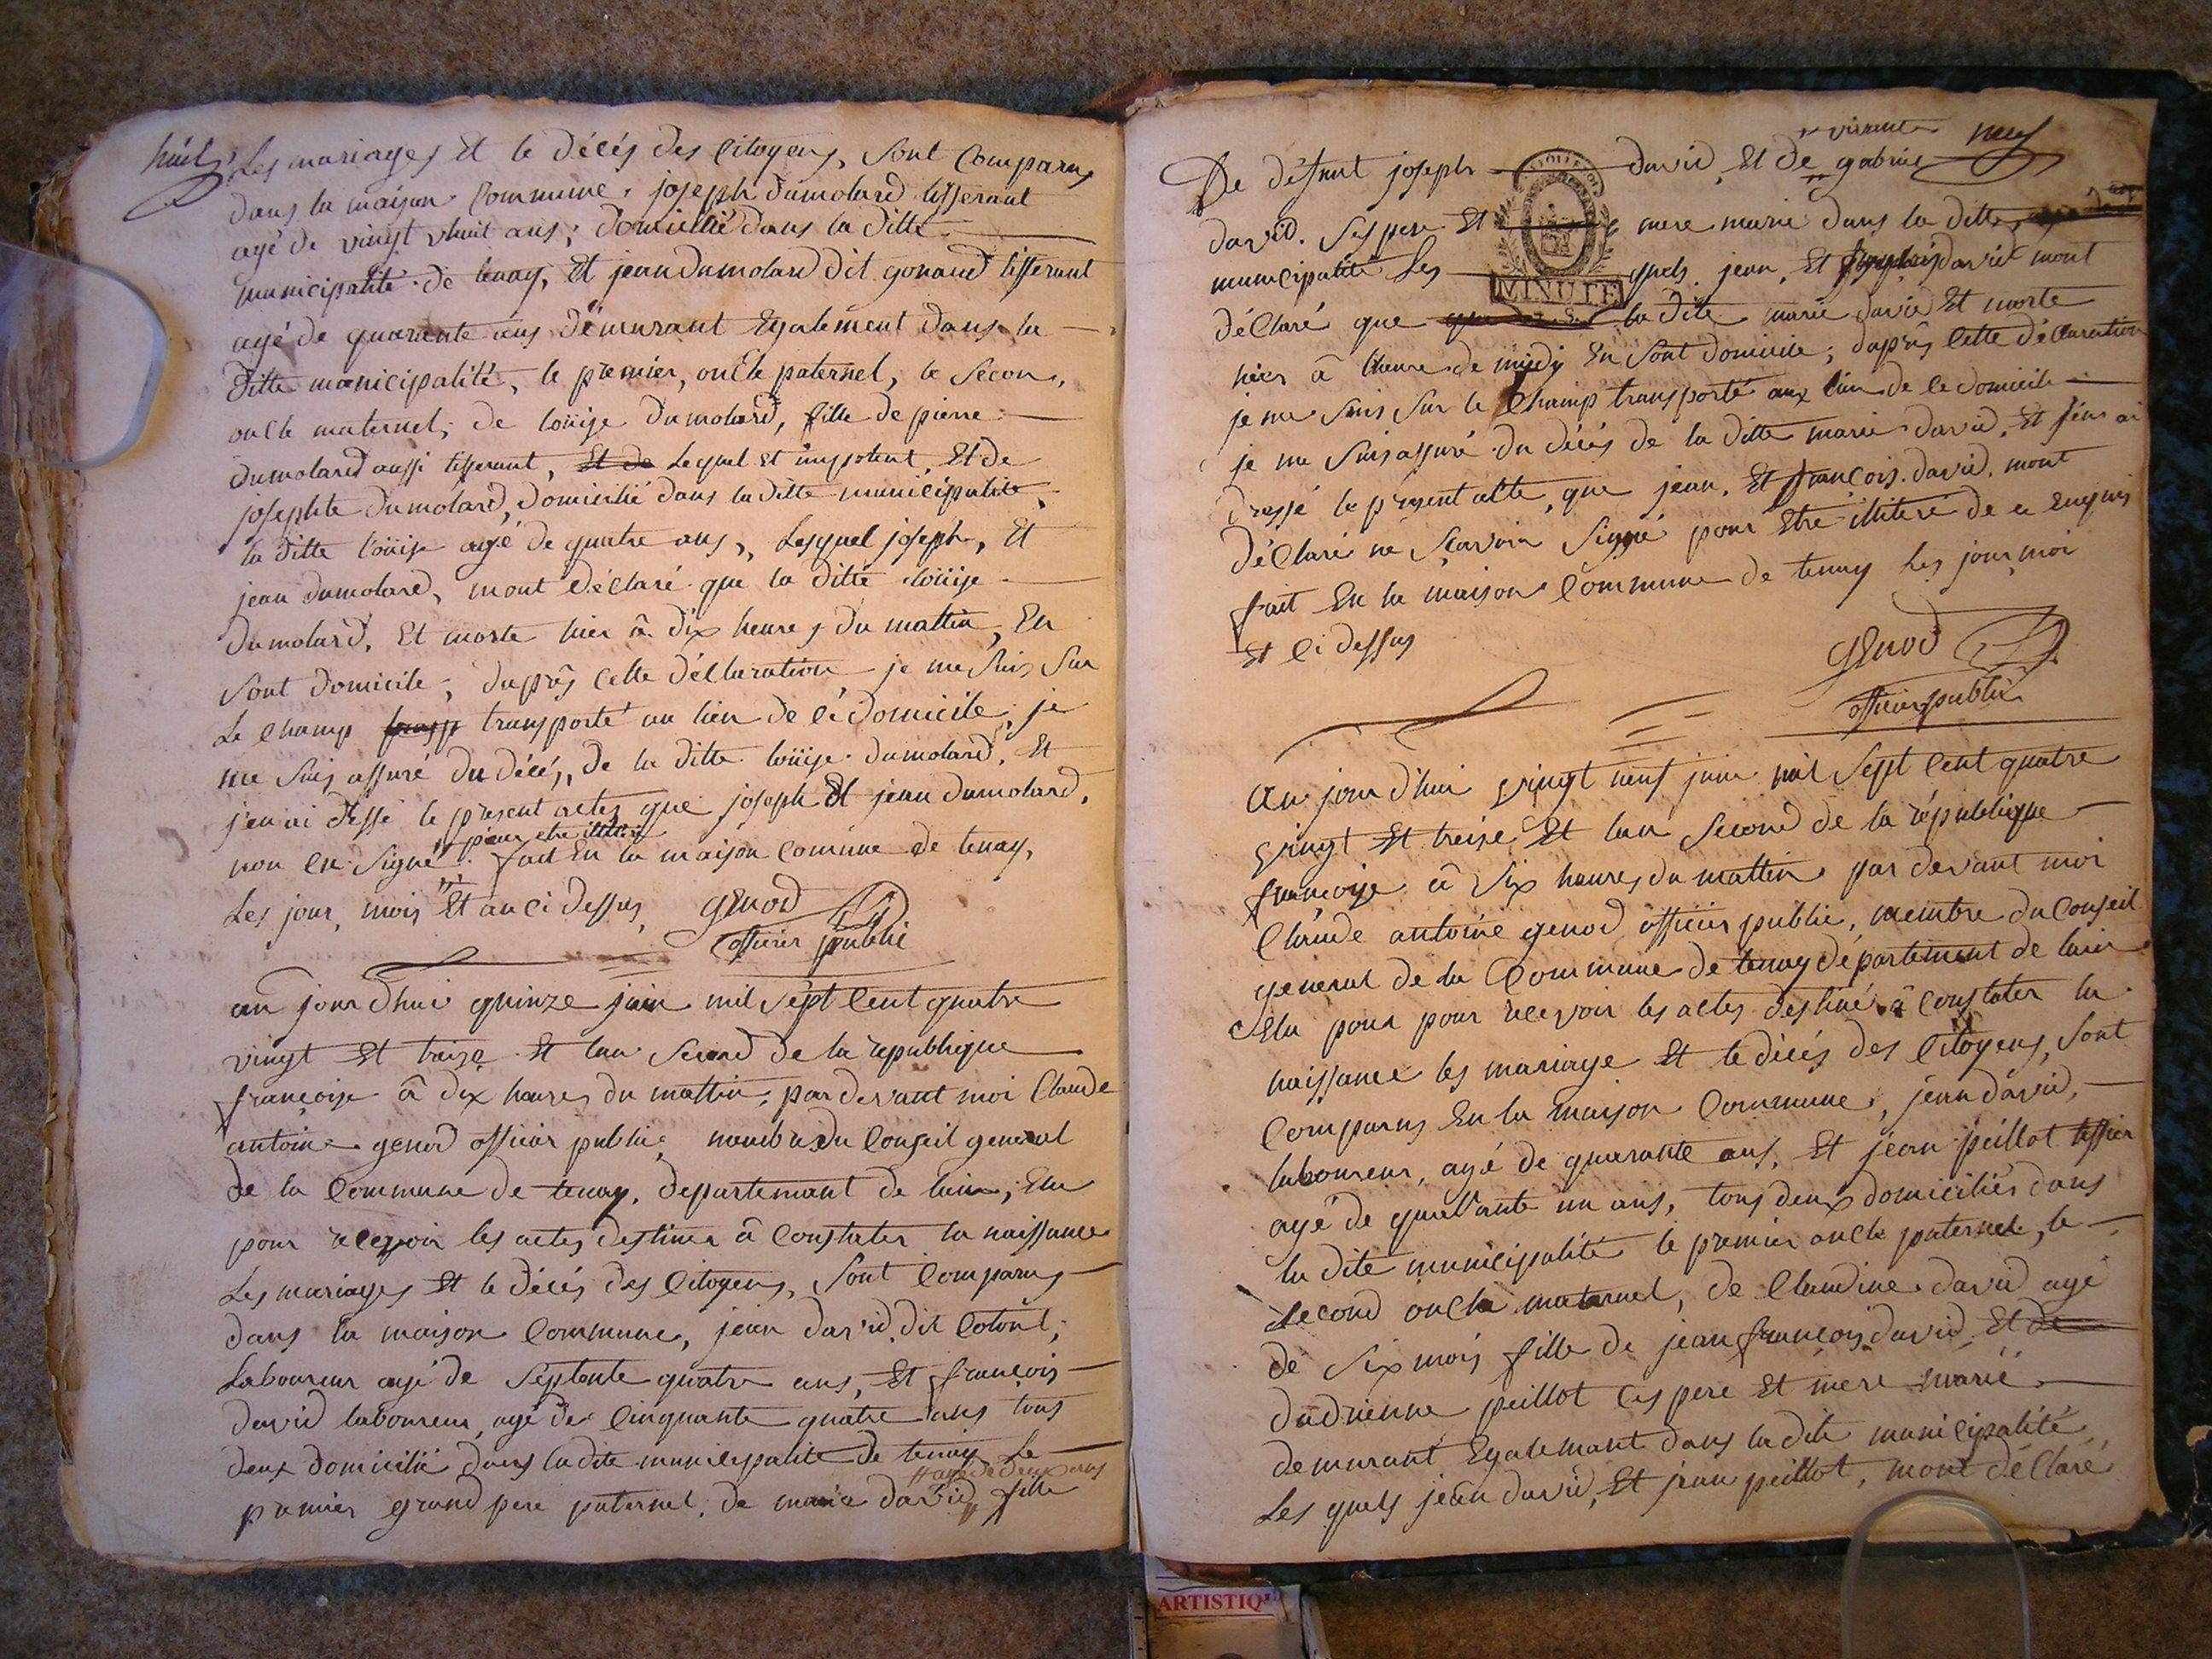 huit
Les mariages Et le décés des Citoyens, sont Comparus
dans la maison Commune, joseph dumolard tisserant
agé de vingt vhuit ans; domicilié dans la ditte
municipalité de tenay, Et jean dumolard dit gonard tisserant
agé de quarante ans démurant Egalement dans la
ditte municipalité, le premier, oncle paternel, le secon,
oncle maternel; de loüise dumolard, fille de pierre
dumolard aussi tisserant, Et de Lequel Et impotent, Et de
josephte dumolard, domicilié dans la ditte municipalité,
la ditte loüise agé de quatre ans, Lesquel joseph, Et
jean dumolard, mont déclaré que la ditte loüise
dumolard, Et morte hier â dix heures du mattin, En
sont domicile; daprês cette déclaration je me suis sur
Le champ transporté au lieu de ce domicile, je
me suis assuré du décés, de la ditte loüise dumolard, Et
j'en ai dressé le present actes que joseph Et jean dumolard,
pour etre illiteré
non en signé fait En la maison comune de tenay,
Les jour, mois Et an ci dessus, genod
officier public
au jourdhui quinze juin mil sept Cent quatre
vingt Et treise Et lan second de la republique
françoise â dix heures du mattin, par devant moi Claude
antoine genod officier public, membre du Conseil general
de la Commune de tenay, departemant de lain, Elu
pour recevoir les actes destines â Constater la naissance
Les mariages Et le décés des Citoyens, sont Comparus
dans la maison Commune, jean david dit Cotont,
Laboureur agé de septente quatre ans, Et françois
david laboureur, agé de Cinquante quatre ans tous
deux domicilié dans la dite municipalite de tenay Le
agé de deux ans
premier grand pere paternel, de marie david, fille
neuf
vivante
De défunt joseph david, Et de gabriele
david. ses pere Et mere marié dans la ditte,
municipalité Les quels jean, Et françois david mont
déclaré que la dite marie david Et morte
hier â lheure de midy En sont domicile; daprês cette déclaration
je me suis sur le champ transporté aux lieu de ce domicile
je me suis assuré du décés de la ditte marie david, Et jen ai
dressé le present acte, que jean, Et françois david, mont
déclaré ne sçavoir signé pour Etre illiteré de ce enquis
fait En la maison Commune de tenay Les jour, moi
Et Ci dessus
genod
officier public
au jourdhui vingt neuf juin mil sept Cent quatre
vingt Et treise Et lan second de la république
françoise â six heures du mattin par devant moi
Claude antoine genod officier public, membre du Conseil
general de la Commune de tenay département de lain
Elu pour pour recevoir les actes destiné â Constater la
naissance les mariage Et le décés des Citoyens, sont
Comparus En la maison Commune, jean david,
laboureur, agé de quarante ans, Et jean peillot tissier
agé de quarante un ans, tous deux domiciliés dans
la dite municipalité le premier oncle paternel, le
second oncle maternel, de Claudine david agé
de six mois fille de jean françois david Et de
dadrienne peillot ces pere Et mere marié
demurant Egalemant dans la dite municipalité,
Les quels jean david, Et jean peillot, mont déclaré
MINUTE
ARTISTIQ